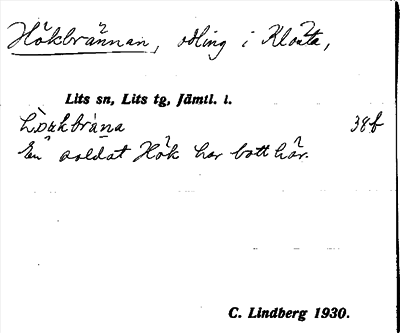 Hökbrännan, odling i Klöxta,
Lits sn, Lits tg, Jämtl. l.
38f
En soldat Hök har bott här.
C. Lindberg 1930.